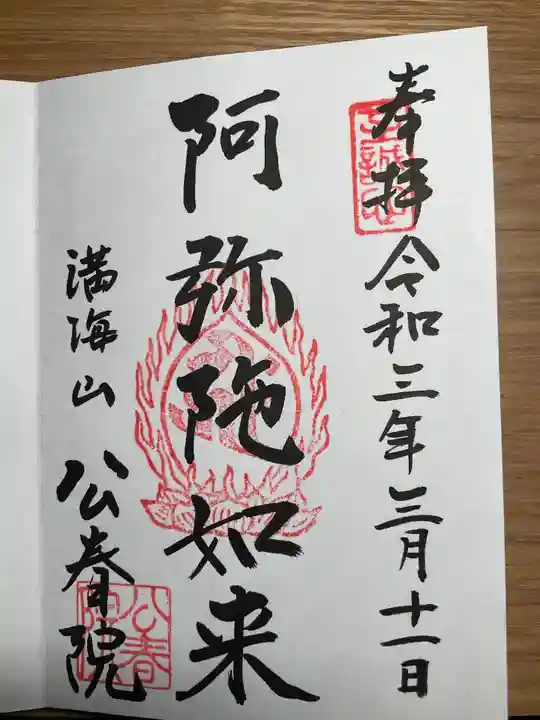 奉拝 令和三年三月十一日
阿弥陀如来
満海山 公春院
公春院